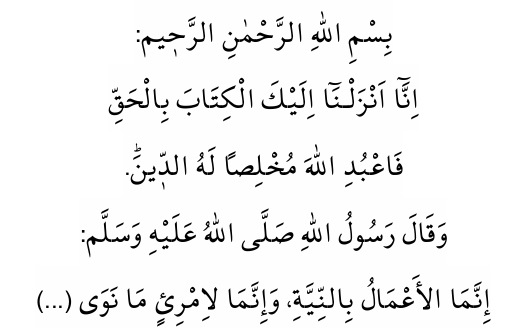 بِسْمِ اللهِ الرَّحْمٰنِ الرَّحٖيمِ:
اِنَّٓا اَنْزَلْـنَٓا اِلَيْكَ الْكِتَابَ بِالْحَقِّ
فَاعْبُدِ اللهَ مُخْلِصًا لَهُ الدّٖينَۜ.
وَقَالَ رَسُولُ اللهِ صَلَّى اللهُ عَلَيْهِ وَسَلَّمَ:
إِنَّمَا الأَعْمَالُ بِالنِّيَّةِ، وَإِنَّمَا لاِمْرِئٍ مَا نَوَى (...)